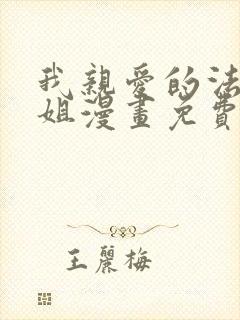 我親愛的法
姐漫畫免費
王麗梅